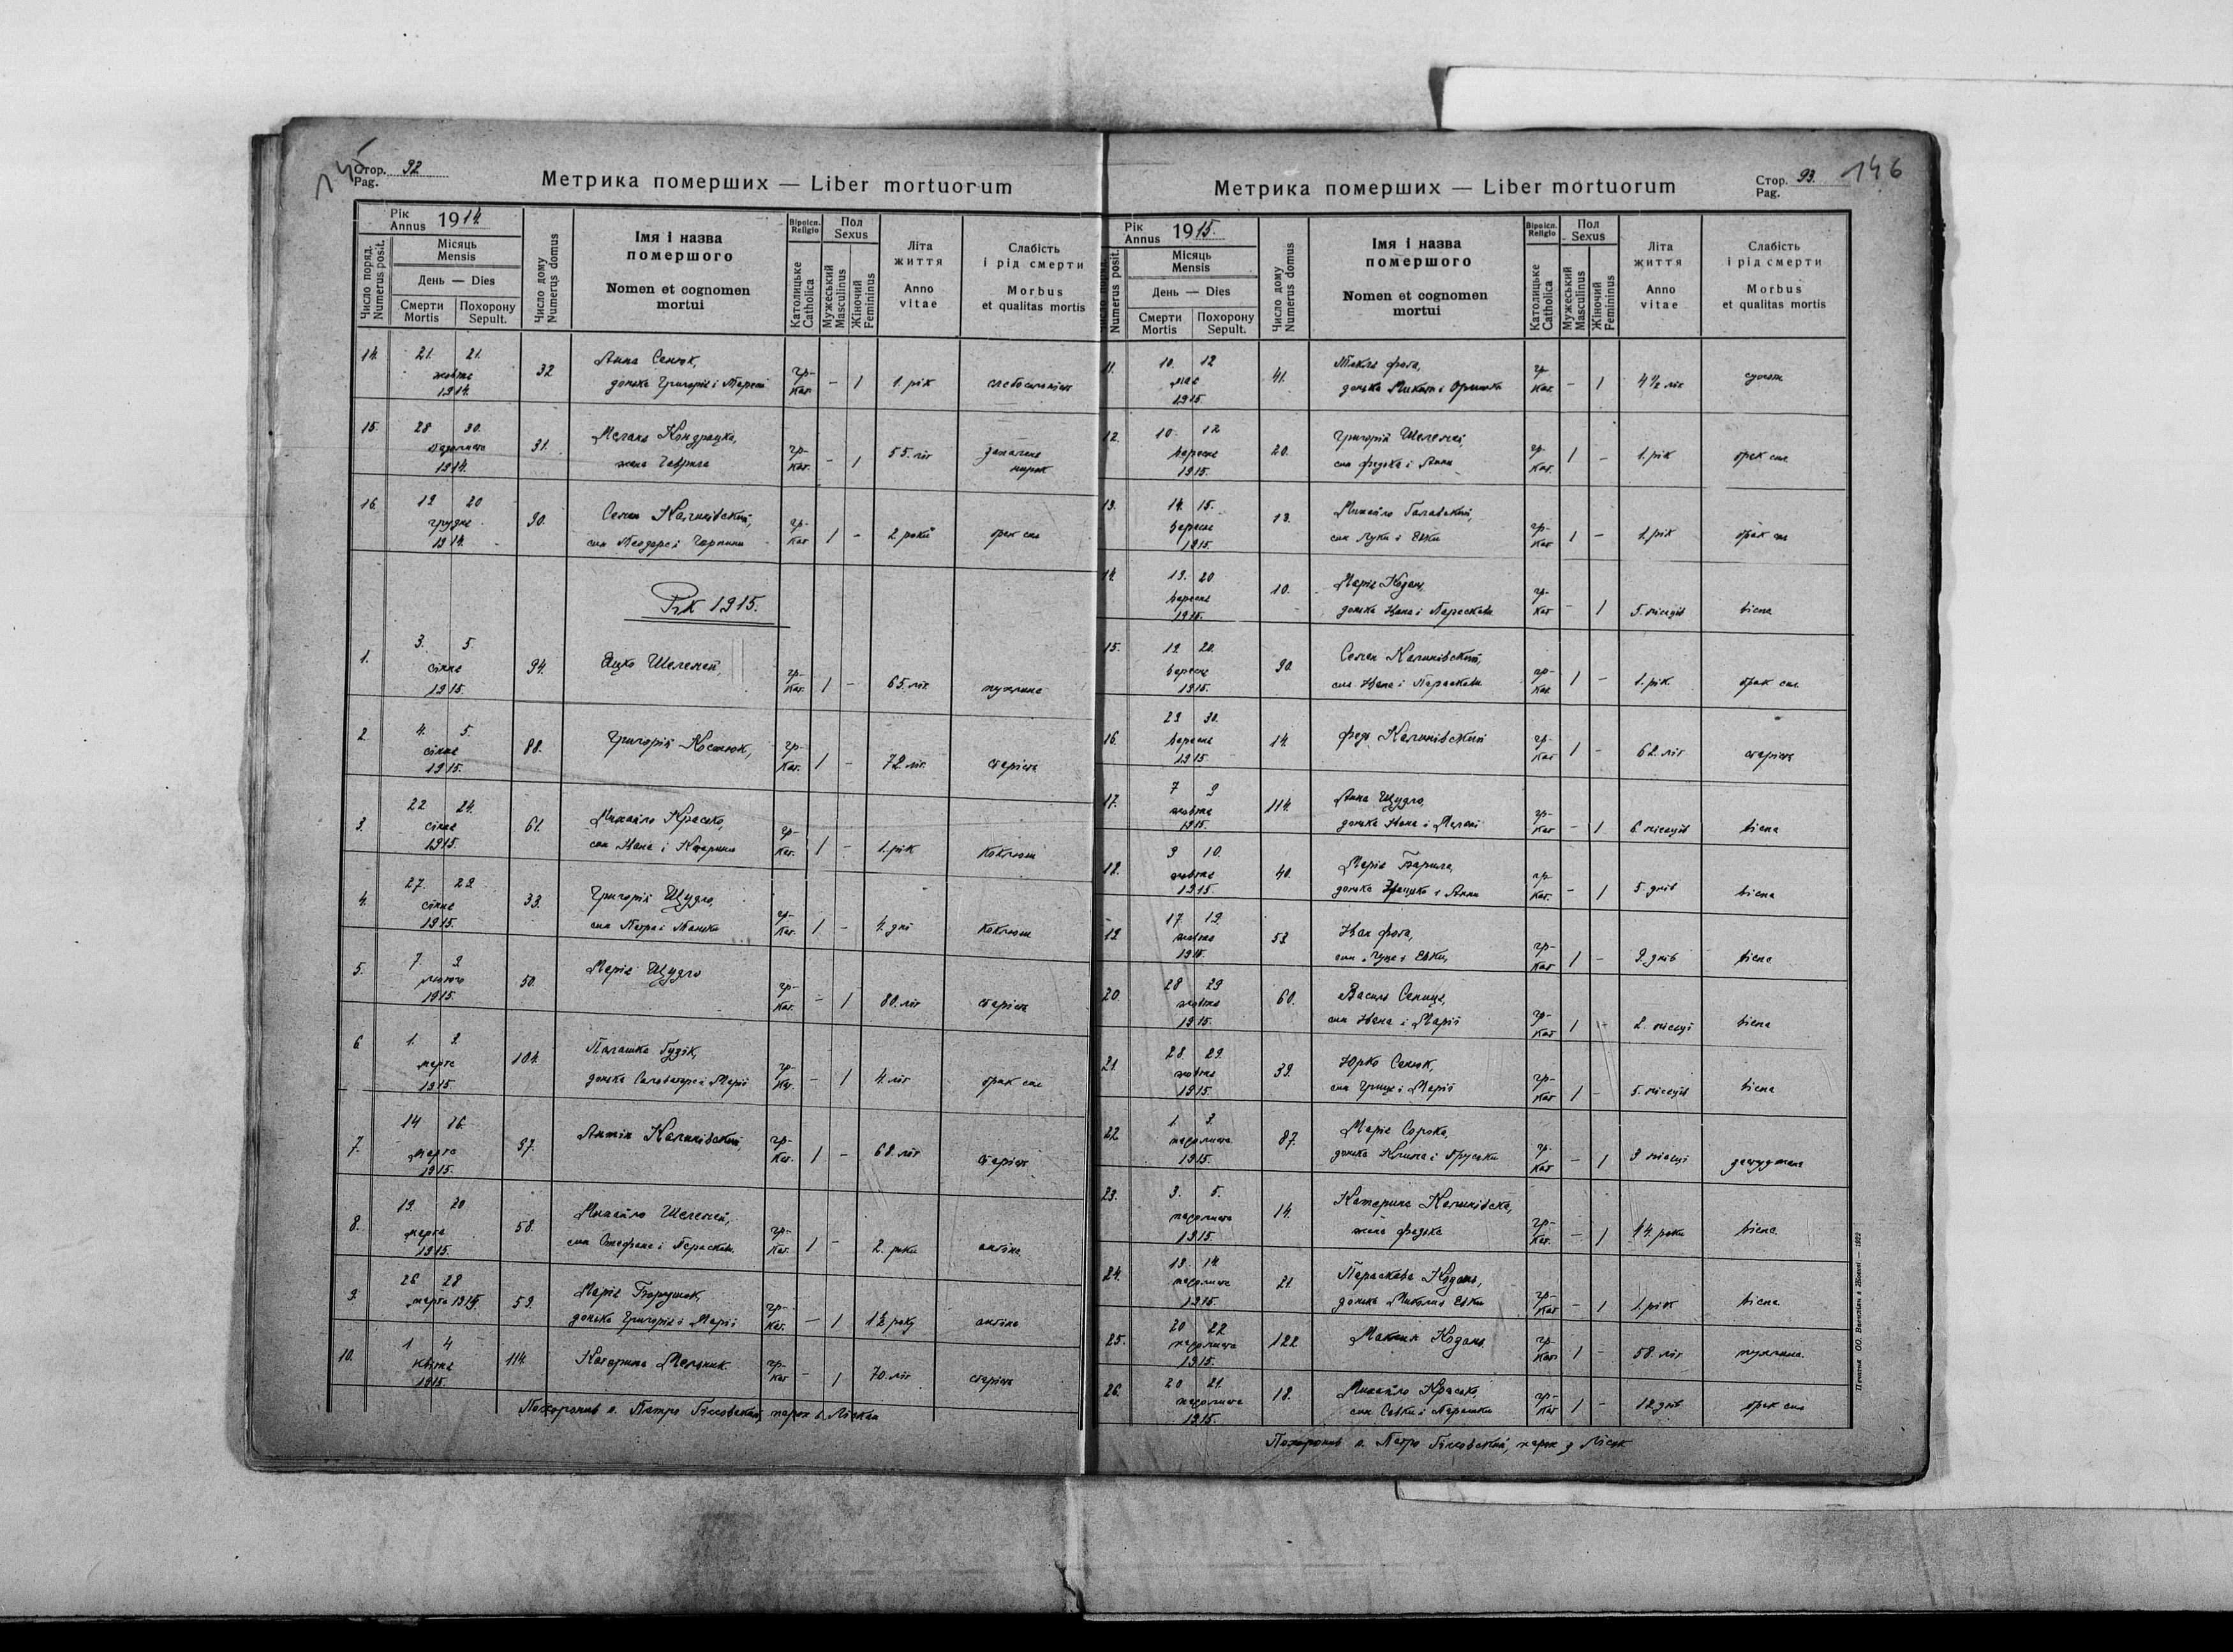 Стор. 92
Pag.
145
Метрика померших — Liber mortuorum
Рік
Annus 1914.
Число поряд.
Numerus posit.
Місяць
Mensis
День — Dies
Смерти
Mortis
Похорону
Sepult.
Число дому
Numerus domus
Імя і назва
помершого
Nomen et cognomen
mortui
Віроісп.
Religio
Католицьке
Catholica
Пол
Sexus
Мужеський
Masculinus
Жіночий
Femininus
Літа
життя
Anno
vitae
Слабість
і рід смерти
Morbus
et qualitas mortis
14. 21. 21. жовтня 1914. 32 Анна Сенюк,
донька Григорія і гр-кат. – 1 1. рік
15. 28 30. падолиста 1914. 31. Мелань Кондрацка,
жена Гаврила гр-кат. – 1 55. літ запаленє нирок
16. 19 20 грудня 1914. 90. Семен Калинівский,
син Теодора і гр-кат 1 – 2 роки брак сил
Рік 1915.
1. 3. 5. січня 1915. 94. Яцко Шелемей, гр-кат. 1 – 65. літ пухлина
2. 4. 5. січня 1915. 88. Григорій Костюк, гр-кат. 1 – 72 літ старість
3. 22 24. січня 1915. 61. Михайло Красько,
син Івана і Катарини гр-кат. 1 – 1. рік коклюш
4. 27. 29. січня 1915. 33. Григорій Щудло,
син Петра і гр-кат. 1 – 4. дні коклюш
5. 7 9. лютого 1915. 50. Марія Щудло гр-кат. – 1 80. літ старість
6. 1. 3. марта 1915. 104. Палашка Гудзік,
донька Марії гр-кат. – 1 4. літ брак сил
7. 14 16. марта 1915. 97. Антін Калинівский, гр-кат. 1 – 68. літ старість
8. 19. 20 марта 1915. 58. Михайло Шелемей,
син Стефана і Параскеви гр-кат. 1 – 2. роки ангіна
9. 26 28 марта 1915. 59. Марія
донька Григорія і Марії гр-кат. – 1 12 року ангіна
10. 1 4 квітня 1915. 114. Катарина Мельник гр-кат – 1 70. літ старість
Похоронив о. Петро парох з Лісок
Метрика померших — Liber mortuorum
Стор. 93.
Pag.
146
Рік
Annus 1915.
Число поряд.
Numerus posit.
Місяць
Mensis
День — Dies
Смерти
Mortis
Похорону
Sepult.
Число дому
Numerus domus
Імя і назва
помершого
Nomen et cognomen
mortui
Віроісп.
Religio
Католицьке
Catholica
Пол
Sexus
Мужеський
Masculinus
Жіночий
Femininus
Літа
життя
Anno
vitae
Слабість
і рід смерти
Morbus
et qualitas mortis
11. 10. 12 мая 1915. 41. Текля Фота,
донька Микити і гр-кат – 1 4½ літ сухоти
12. 10. 12 вересня 1915. 20. Григорій Шелемей,
син Федька і Анни гр-кат. 1 – 1. рік брак сил
13. 14. 15. вересня 1915. 13. Михайло
син Луки і Евки гр-кат 1 – 1. рік брак сил
14. 19. 20 вересня 1915. 10. Марія Кодань,
донька Івана і Параскеви гр-кат – 1 5. місяців віспа
15. 19. 20. вересня 1915. 90. Семен Калинівский,
син Івана і Параскеви гр-кат 1 – 1. рік брак сил
16. 29 30. вересня 1915. 14. Федь Калинівский гр-кат 1 – 62. літ старість
17. 7 9 жовтня 1915. 114. Анна Щудло,
донька Івана і гр-кат – 1 6. місяців віспа
18. 9 10. жовтня 1915 40. Марія
донька і Анни гр-кат. – 1 5. днів віспа
19 17 19 жовтня 1915. 53. Іван Фота,
син і Евки, гр-кат 1 – 9. днів віспа
20. 28 29 жовтня 1915. 60. Василь
син Івана і Марії гр-кат 1 – 2. місяці віспа
21. 28. 29. жовтня 1915. 39. Юрко Сенюк,
син Гриця і Марії гр-кат 1 – 5. місяців віспа
22 1. 3. падолиста 1915. 87. Марія Сорока,
донька гр-кат – 1 3 місяці
23. 3. 5. падолиста 1915. 14. Катерина Калинівска,
жена Федька гр-кат. – 1 44. роки віспа
24. 13. 14. падолиста 1915. 21. Параскева Кодань,
донька Миколи і Евки гр-кат – 1 1. рік віспа
25. 20 22 падолиста 1915. 122 Максим Кодань гр-кат 1 – 58. літ пухлина.
26. 20 21. падолиста 1915. 18. Михайло Красько,
син і Парашки гр-кат 1 – 12 днів брак сил
Похоронив о. Петро парох з Лісок
Печатня ОО. Василіян в Жовкві — 1922